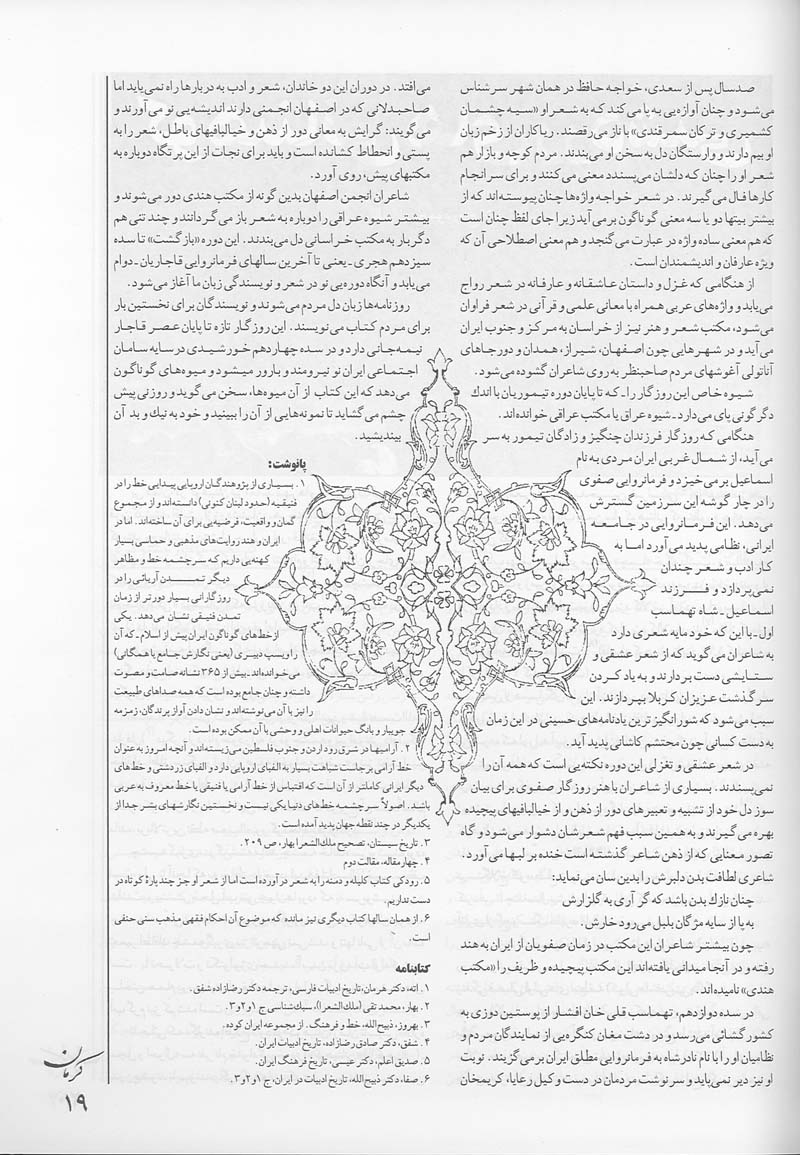 صدسال پس از سعدی، خواجه حافظ در همان شهر سرشناس
می‌شود و چنان آوازه‌یی به پا می‌کند که به شعر او «سیه چشمان
کشمیری و ترکان سمرقندی» با ناز می‌رقصند. ریاکاران از زخم زبان
او بیم دارند و وارستگان دل به سخن او می‌بندند. مردم کوچه و بازار هم
شعر او را چنان که دلشان می‌پسندد معنی می‌کنند و برای سرانجام
کارها فال می‌گیرند. در شعر خواجه واژه‌ها چنان پیوسته‌اند که از
بیشتر بیتها دو یا سه معنی گوناگون برمی‌آید زیرا جای لفظ چنان است
که هم معنی ساده واژه در عبارت می‌گنجد و هم معنی اصطلاحی آن که
ویژه عارفان و اندیشمندان است.
از هنگامی که غزل و داستان عاشقانه و عارفانه در شعر رواج
می‌یابد و واژه‌های عربی همراه با معانی علمی و قرآنی در شعر فراوان
می‌شود، مکتب شعر و هنر نیز از خراسان به مرکز و جنوب ایران
می‌آید و در شهرهایی چون اصفهان، شیراز، همدان و دورجاهای
آناتولی آغوشهای مردم صاحبنظر به روی شاعران گشوده می‌شود.
شیوه خاص این روزگار را ـ که تا پایان دوره تیموریان با اندك
دگرگونی پای می‌دارد ـ شیوه عراق یا مکتب عراقی خوانده‌اند.
هنگامی که روزگار فرزندان چنگیز و زادگان تیمور به سر
می‌آید، از شمال غربی ایران مردی به نام
اسماعیل برمی‌خیزد و فرمانروایی صفوی
را در چار گوشه این سرزمین گسترش
می‌دهد. این فرمانروایی در جامعه
ایرانی، نظامی پدید می‌آورد اما به
کار ادب و شعر چندان
نمی‌پردازد و فرزند
اسماعیل ـ شاه تهماسب
اول ـ با این که خود مایه شعری دارد
به شاعران می‌گوید که از شعر عشقی و
ستایشی دست بردارند و به یاد کردن
سرگذشت عزیزان کربلا بپردازند. این
سبب می‌شود که شورانگیزترین یادنامه‌های حسینی در این زمان
به دست کسانی چون محتشم کاشانی پدید آید.
در شعر عشقی و تغزلی این دوره نکته‌یی است که همه آن را
نمی‌پسندند. بسیاری از شاعران با هنر روزگار صفوی برای بیان
سوز دل خود از تشبیه و تعبیرهای دور از ذهن و از خیالبافیهای پیچیده
بهره می‌گیرند و به همین سبب فهم شعرشان دشوار می‌شود و گاه
تصور معنایی که از ذهن شاعر گذشته است خنده بر لبها می‌آورد.
شاعری لطافت بدن دلبرش را بدین سان می‌نماید:
چنان نازك بدن باشد که گر آری به گلزارش
به پا از سایه مژگان بلبل می‌رود خارش.
چون بیشتر شاعران این مکتب در زمان صفویان از ایران به هند
رفته و در آنجا میدانی یافته‌اند این مکتب پیچیده و ظریف را «مکتب
هندی» نامیده‌اند.
در سده دوازدهم، تهماسب قلی خان افشار از پوستین دوزی به
کشور گشائی می‌رسد و در دشت مغان کنگره‌یی از نمایندگان مردم و
نظامیان او را با نام نادرشاه به فرمانروایی مطلق ایران برمی‌گزیند. نوبت
او نیز دیر نمی‌پاید و سرنوشت مردمان در دست وکیل رعایا، کریمخان
می‌افتد. در دوران این دو خاندان، شعر و ادب به دربارها راه نمی‌یابد اما
صاحبدلانی که در اصفهان انجمنی دارند اندیشه‌یی نو می‌آورند و
می‌گویند: گرایش به معانی دور از ذهن و خیالبافیهای باطل، شعر را به
پستی و انحطاط کشانده است و باید برای نجات از این پرتگاه دوباره به
مکتبهای پیش، روی آورد.
شاعران انجمن اصفهان بدین گونه از مکتب هندی دور می‌شوند و
بیشتر شیوه عراقی را دوباره به شعر باز می‌گردانند و چند تنی هم
دگربار به مکتب خراسانی دل می‌بندند. این دوره «بازگشت» تا سده
سیزدهم هجری ـ یعنی تا آخرین سالهای فرمانروایی قاجاریان ـ دوام
می‌یابد و آنگاه دوره‌یی نو در شعر و نویسندگی زبان ما آغاز می‌شود.
روزنامه‌ها زبان دل مردم می‌شوند و نویسندگان برای نخستین بار
برای مردم کتاب می‌نویسند. این روزگار تازه تا پایان عصر قاجار
نیمه‌جانی دارد و در سده چهاردهم خورشیدی در سایه سامان
اجتماعی ایران نو نیرومند و بارور میشود و میوه‌های گوناگون
می‌دهد که این کتاب از آن میوه‌ها، سخن می‌گوید و روزنی پیش
چشم می‌گشاید تا نمونه‌هایی از آن را ببینید و خود به نیك و بد آن
بیندیشید.
پانوشت:
۱. بسیاری از پژوهندگان اروپایی پیدایی خط را در
فنیقیه (حدود لبنان کنونی) دانسته‌اند و از مجموع
گمان و واقعیت، فرضیه‌یی برای آن ساخته‌اند. اما در
ایران و هند روایت‌های مذهبی و حماسی بسیار
کهنه‌یی داریم که سرچشمه خط و مظاهر
دیگر تمدن آریائی را در
روزگارانی بسیار دورتر از زمان
تمدن فنیقی نشان می‌دهد. یکی
از خط‌های گوناگون ایران پیش از اسلام ـ که آن
را ویسپ دبیری (یعنی نگارش جامع یا همگانی)
می‌خوانده‌اند ـ بیش از ۳۶۵ نشانه صامت و مصوت
داشته و چنان جامع بوده است که همه صداهای طبیعت
را نیز با آن می‌نوشته‌اند و نشان دادن آواز پرندگان، زمزمه
جویبار و بانگ حیوانات اهلی و وحشی با آن ممکن بوده است.
۲. آرامیها در شرق رود اردن و جنوب فلسطین می‌زیسته‌اند و آنچه امروز به عنوان
خط آرامی برجاست شباهت بسیار به الفبای اروپایی دارد و الفبای زردشتی و خط‌های
دیگر ایرانی کاملتر از آن است که اقتباس از خط آرامی یا فنیقی یا خط معروف به عربی
باشد. اصولاً سرچشمه خط‌های دنیا یکی نیست و نخستین نگارشهای بشر جدا از
یکدیگر در چند نقطه جهان پدید آمده است.
۳. تاریخ سیستان، تصحیح ملك‌الشعرا بهار، ص ۲۰۹.
۴. چهارمقاله، مقالت دوم
۵. رودکی کتاب کلیله و دمنه را به شعر در آورده است اما از شعر او جز چند پارۀ کوتاه در
دست نداریم.
۶. از همان سالها کتاب دیگری نیز مانده که موضوع آن احکام فقهی مذهب سنی حنفی
است.
کتابنامه
۱. اته، دکتر هرمان، تاریخ ادبیات فارسی، ترجمه دکتر رضازاده شفق.
۲. بهار، محمد تقی (ملك‌الشعرا)، سبك‌شناسی ج ۱و۲و۳.
۳. بهروز، ذبیح‌الله، خط و فرهنگ. از مجموعه ایران کوده.
۴. شفق، دکتر صادق رضازاده، تاریخ ادبیات ایران.
۵. صدیق اعلم، دکتر عیسی، تاریخ فرهنگ ایران.
۶. صفا، دکتر ذبیح‌الله، تاریخ ادبیات در ایران، ج ۱و۲و۳.
کرمان
۱۹